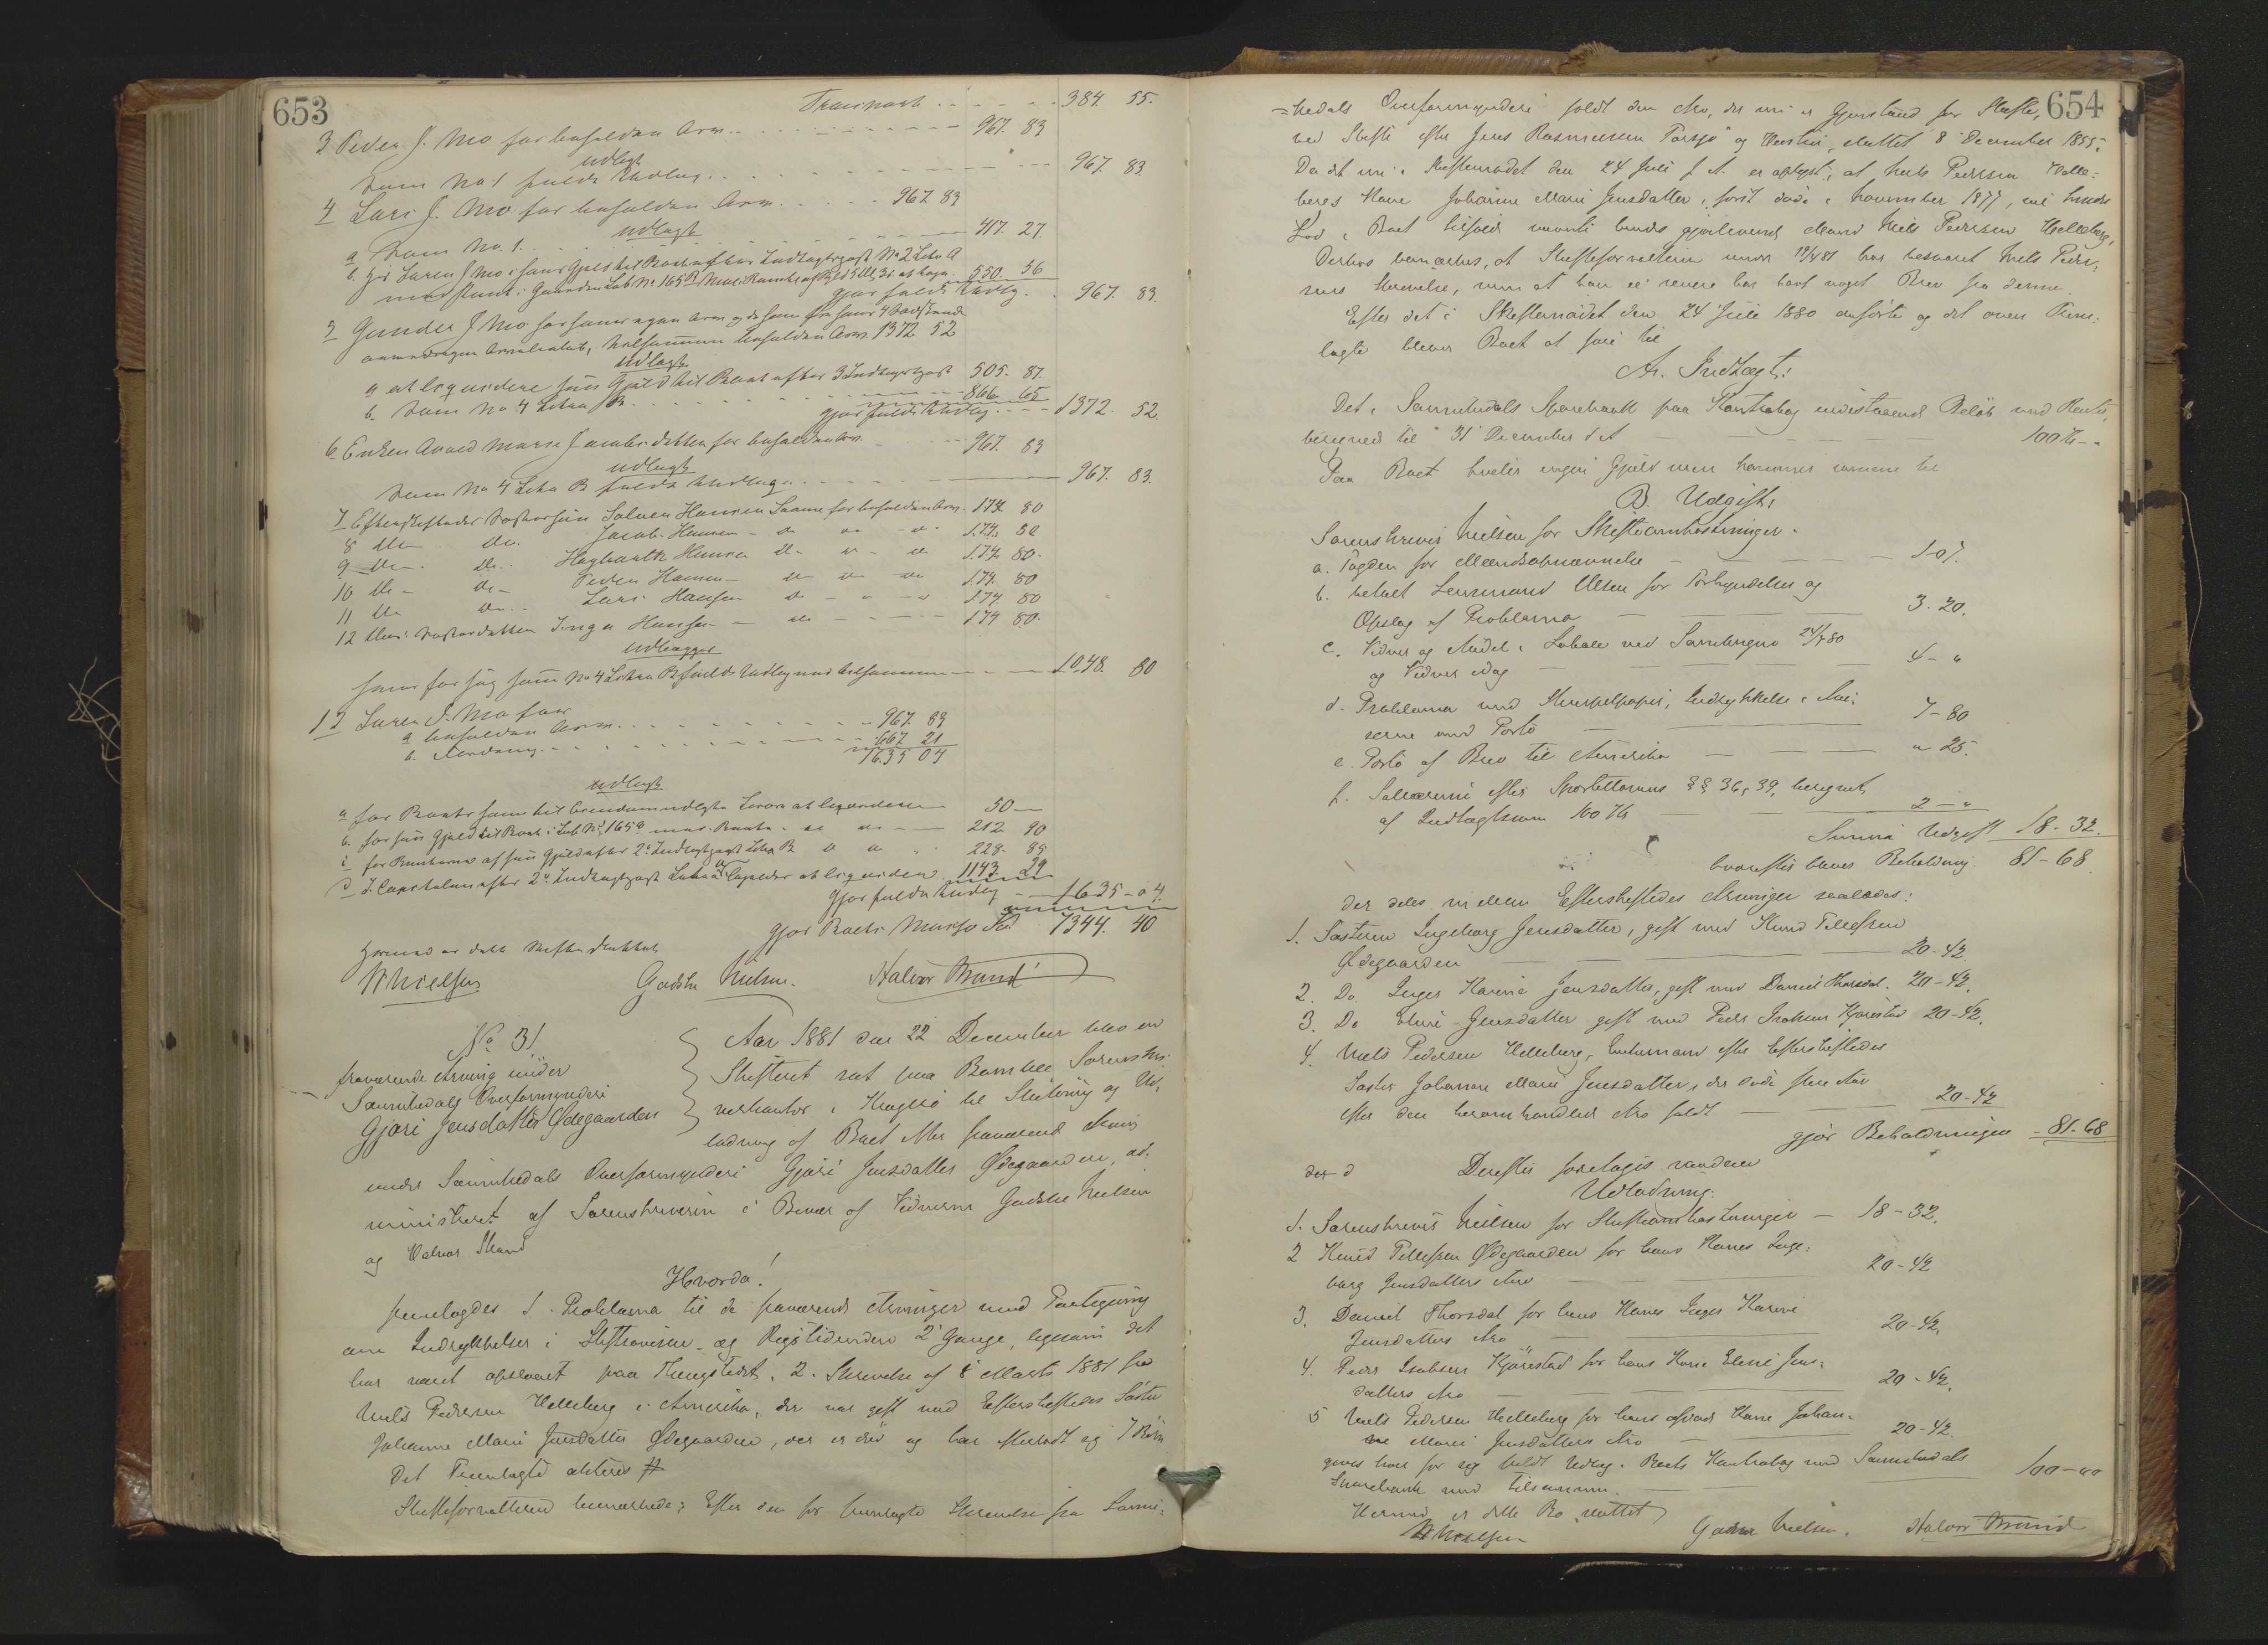 653
Transport 384. 55.
3 Peder J. Mo for beholden Arv 967. 83
Udlagt
Som No 1 fulde Udlæg 967. 83.
4 Lars J. Mo for beholden Arv 967 83
Udlagt
a Som No. 1. 417. 27
b. hos Søren J Mo i hans Gjeld til Boet efter Indtægtspost No 2 Litr A
med Pant i Gaarden Lab No 165 550. 56
gjør fulde Udlæg. 967. 83.
5 Gunder J Mo for hans egen Arv og de ham fra hans 4 Sødskende
Arvelodder, tilsammen beholden Arv. 1372 52
Udlagt
a at liquidere sin Gjeld til Boet efter 3 Indtægtspost 505. 87.
b. Som No 4 Litra B 866. 65
gjør fulde Udlæg 1372. 52.
6 Enken Maren Jacobsdatter for beholden Arv 967. 83
Udlagt
Som No 4 Litra B fulde Udlæg 967. 83.
7 Efterskiftedes Søstersøn Halvor Hansen for beholden Arv. 174 80
8 do do Jacob Hansen - do do - do 174. 80
9 do. do. Hansen do - do - do 174. 80.
10 do - do - Peder Hansen do do do 174. 80
11 do do - Lars Hansen do - do - do 174 80
12 dens Søsterdatter Inga Hansen - do - 174 80.
Udlægges
hver for sig som No 4 Litra B fulde Udlæg med tilsammen 1048. 80
13 Søren J. Mo for
a beholden Arv 967. 83
b. 667 21
1635 04
Udlagt
a for Boets 50 —
b. for sin Gjeld til Boet i Lab No 165 212. 90
c for Renterne af sin Gjeld efter 2 Indtægtspost Litra B 228. 85
d i Capitalen efter 2 Indtægtspost at liquidere 1143. 29
gjør fulde Udlæg 1635 - 04
gjør Boets Masse Kr 7344. 40
Hermed er dette Skifte sluttet
WNielsen Godske Nielsen. Halvor Strand
No 31
fraværende Arving under
Sannikedals Overformynderi
Gjøri Jensdatter Ødegaarden
Aar 1881 den 22 December blev en
Skifteret sat paa Bamble Sorenskri-
verkontor i Kragerø til Slutning og Ud-
lodning af Boet efter fraværende Arving
under Sannikedals Overformynderi Gjøri Jensdatter Ødegaarden, ad-
ministreret af Sorenskriveren i Overvær af Vidnerne Godske Nielsen
og Halvor Strand
Hvorda!
fremlagdes 1. Proklama til de fraværende Arvinger med Paategning
om Indrykkelser i Stiftsavisen og Rigstidenden 2 Gange, ligesom det
har været opslaaet paa Thingstedet. 2. Skrivelse af 8 Marts 1881 fra
Niels Pedersen Helleberg i Amerika, der var gift med Efterskiftedes Søster
Johanne Marie Jensdatter Ødegaarden, der er død og har efterladt sig 7 Børn
Det Fremlagte akteres #
Skifteforvalteren bemærkede: Efter den før fremlagte Skrivelse fra Sanni-
654
=kedals Overformynderi faldt den Arv, der nu er Gjenstand for Skifte,
ved Skifte efter Jens Rasmussen Farsjø og Hustru, sluttet 8 December 1855.
Da det nu i Skiftemødet den 24 Juli f. A. er oplyst, at Niels Pedersen Helle-
bergs Kone Johanne Marie Jensdatter, først døde i November 1877, vil hendes
Lod i Boet tilfalde hendes gjenlevende Mand Niels Pedersen Helleberg,
Derhos bemærkes, at Skifteforvalteren under 19/4 81 har besvaret Niels Peder-
sens Skrivelse, men at han ei senere har havt noget Brev fra denne.
Efter det i Skiftemødet den 24 Juli 1880 anførte og det oven Frem-
lagte bliver Boet at føre til
A. Indtægt:
Det i Sannikedals Sparebank paa Kontrabog indestaaende Beløb med Renter,
beregnet til 31 December d A 100 Kr - "
Paa Boet hviler ingen Gjeld men kommer samme til
B. Udgift:
Sorenskriver Nielsen for Skifteomkostninger.
a. Fogden for Mændsopnævnelse 1 - 07.
b. betalt Lensmand Olsen for Forkyndelser og
Opslag af Proklama 3. 20.
c. Vidner og Andel i Lokale ved Samlingen 24/7 80
og Vidner idag 4 - "
d. Proklama med Stempelpapir, Indrykkelse i Avi-
serne med Porto 7 - 80
e. Porto af Brev til Amerika " 25.
f. Sallærerne efter Sportellovens §§ 36, 39, beregnet
af Indtægtssum 100 Kr 2 - "
Summa Udgift 18 - 32.
hvorefter bliver Beholdning 81 - 68.
der deles mellem Efterskiftedes Arvinger saaledes:
1. Søsteren Ingeborg Jensdatter, gift med Knud Tellefsen
Ødegaarden 20 - 42.
2. Do Inger Karine Jensdatter, gift med Daniel Thorsdal. 20 - 42.
3. Do Elene Jensdatter gift med Peder Isaksen Kjørestad 20 - 42.
4. Niels Pedersen Helleberg, Enkemand efter Efterskiftedes
Søster Johanne Marie Jensdatter, der døde flere Aar
efter den heromhandlede Arv faldt 20 - 42
gjør Beholdningen 81 - 68
Derefter foretages saadan
Udlodning:
1. Sorenskriver Nielsen for Skifteomkostninger — 18 - 32.
2 Knud Tellefsen Ødegaarden for hans Kones Inge-
borg Jensdatters Arv 20 - 42
3. Daniel Thorsdal for hans Kones Inger Karine
Jensdatters Arv 20 - 42.
4. Peder Isaksen Kjørestad for hans Kone Elene Jens-
datters Arv 20 - 42.
5 Niels Pedersen Helleberg for hans afdøde Kone Johan-
ne Marie Jensdatters Arv 20 - 42.
gives hver for sig fuldt Udlæg i Boets Kontrabog med Sannikedals
Sparebank med tilsammen. 100 - 00
Hermed er dette Bo sluttet
WNielsen Godske Nielsen. Halvor Strand